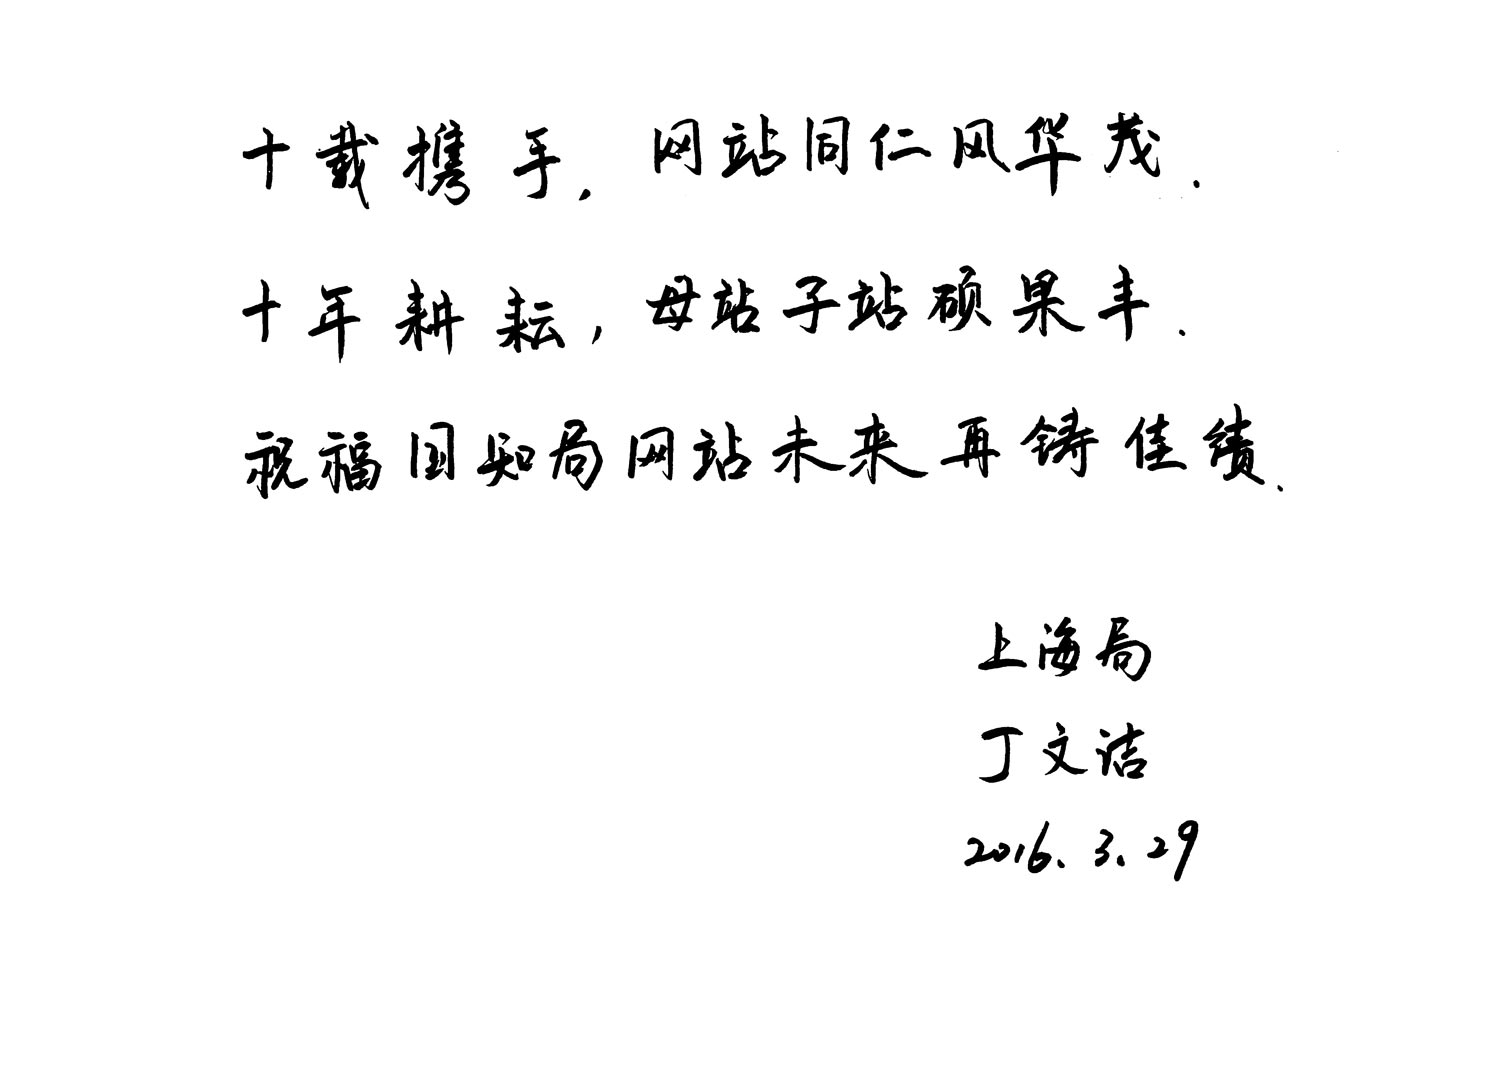 十载携手，网站同仁风华茂.
十年耕耘，母站子站硕果丰.
祝福国知局网站未来再铸佳绩.
上海局
丁文洁
2016.3.29